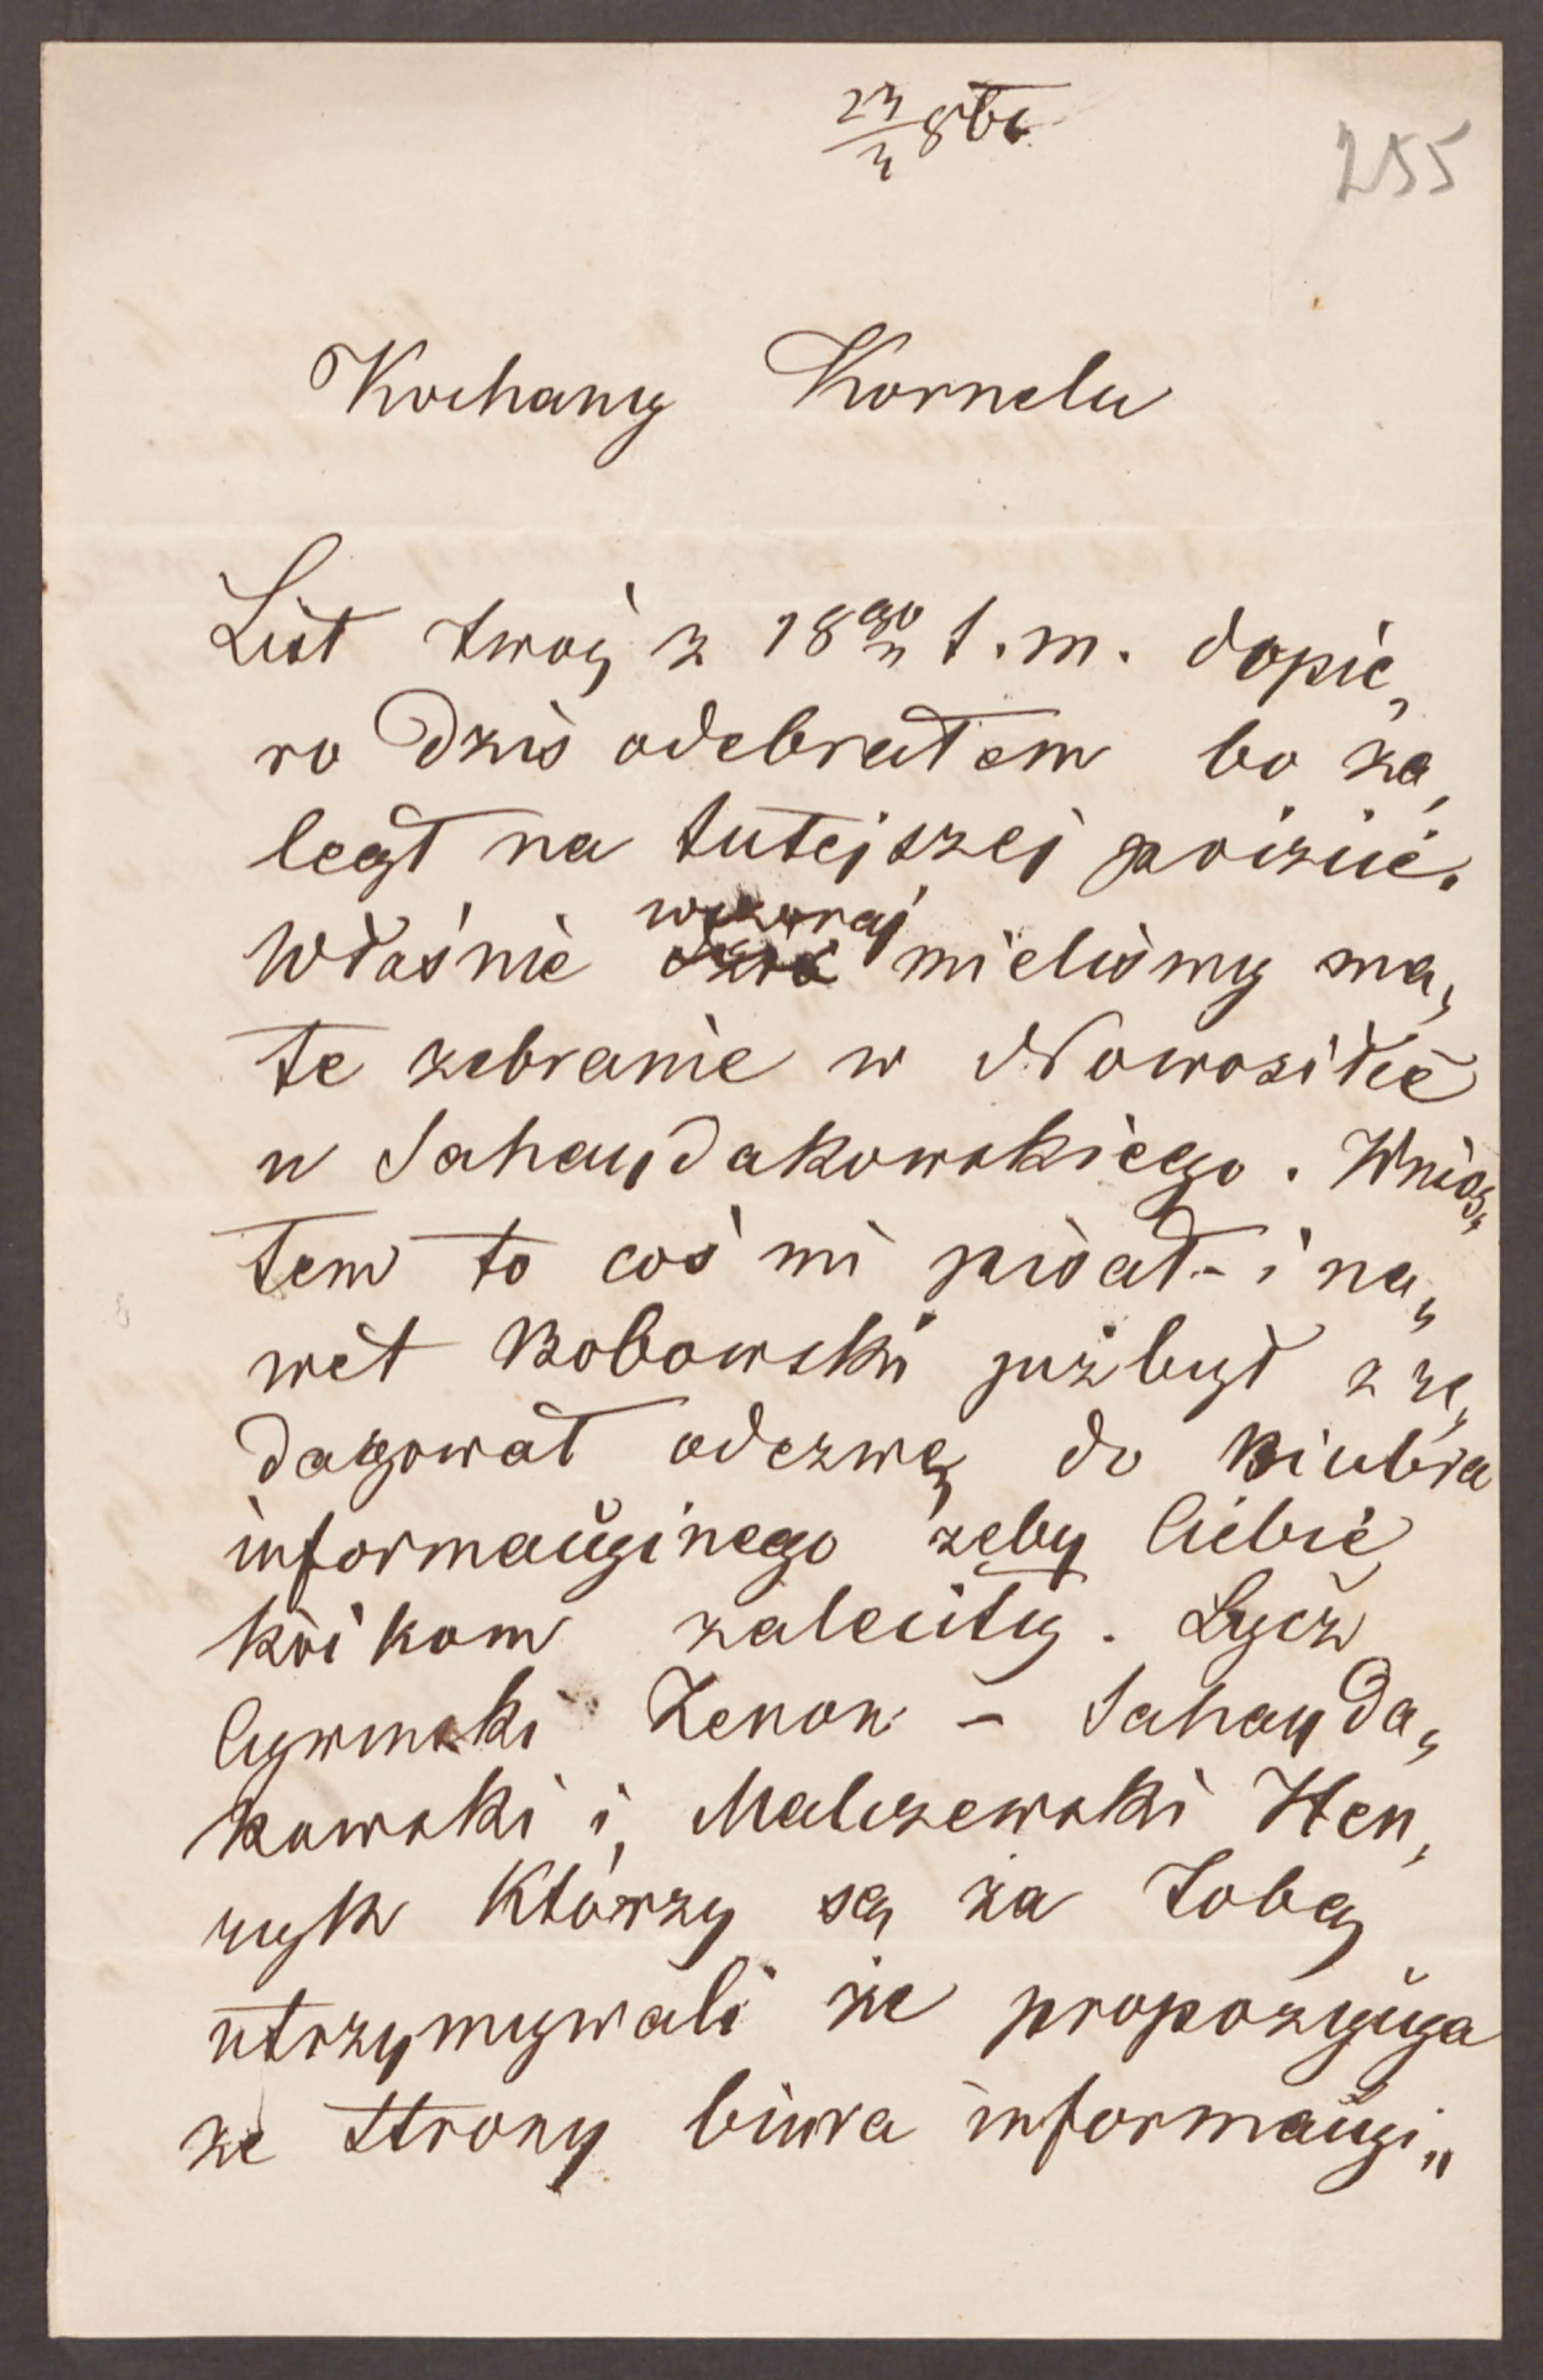 23/3 86
255
Kochany Kornelu
List twoj z 18go t. m. dopie„
ro dziś odebrałem bo za„
legł na tutejszej poczcie.
Właśnie wczoraj mieliśmy ma„
łe zebranie w Nowosiółce
u Sahaydakowskiego. Wnios„
łem to coś mi pisał – i na„
wet Bobowski już był zre„
dagował odezwę do Biura
informacyjnego żeby Ciebie
kółkom zaleciły. Lecz
Cywinski Zenon – Sahayda„
kowski i Maliszewski Hen„
ryk którzy są za Tobą
utrzymywali że propozycya
ze strony biura informacyj„